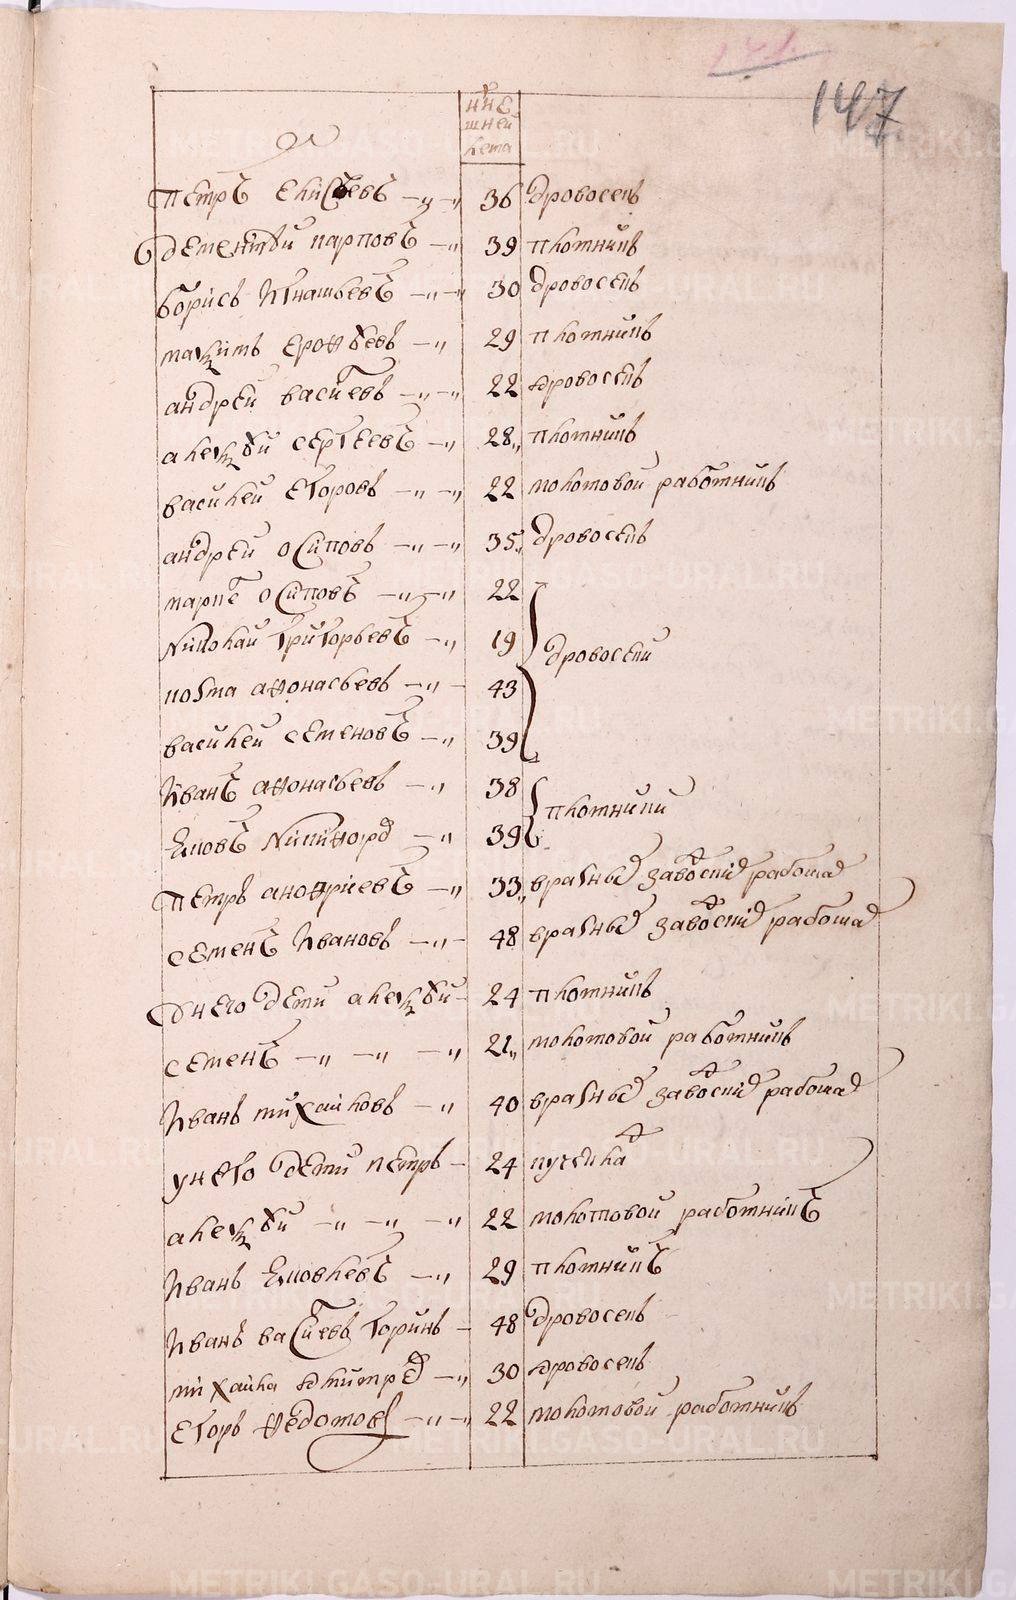 147
ннѣ
шней
лета
Петръ Елисеевъ 36 дровосекъ
Дементей Карповъ 39 плотникъ
Борисъ Игнатьевъ 30 дровосекъ
Максимъ Ерофѣевъ 29 плотникъ
Андрей Васильевъ 22 дровосекъ
Алексѣй Сергеевъ 28 плотникъ
Василей Егоровъ 22 молотовой работникъ
Андрей Осиповъ 35 дровосекъ
Карпъ Осиповъ 22
Николай Григорьевъ 19 дровосеки
Козма Афонасьевъ 43
Василей Семеновъ 39
Иванъ Афонасьевъ 38 плотники
Яковъ Никифоро 39
Петръ Анофриевъ 33 вразные заводские работа
Семенъ Ивановъ 48 вразные заводские работа
Унего дети Алексѣй 24 плотникъ
Семенъ 21 молотовой работникъ
Иванъ Михайловъ 40 вразные заводские работа
унего дети Петръ 24
Алексѣй 22 молотовой работникъ
Иванъ Яковлевъ 29 плотникъ
Иванъ Васильевъ Горинъ 48 дровосекъ
Михайла Дмитрев 30 дровосекъ
Егоръ Федотовъ 22 молотовой работникъ
METRIKI.GASO-URAL.RU